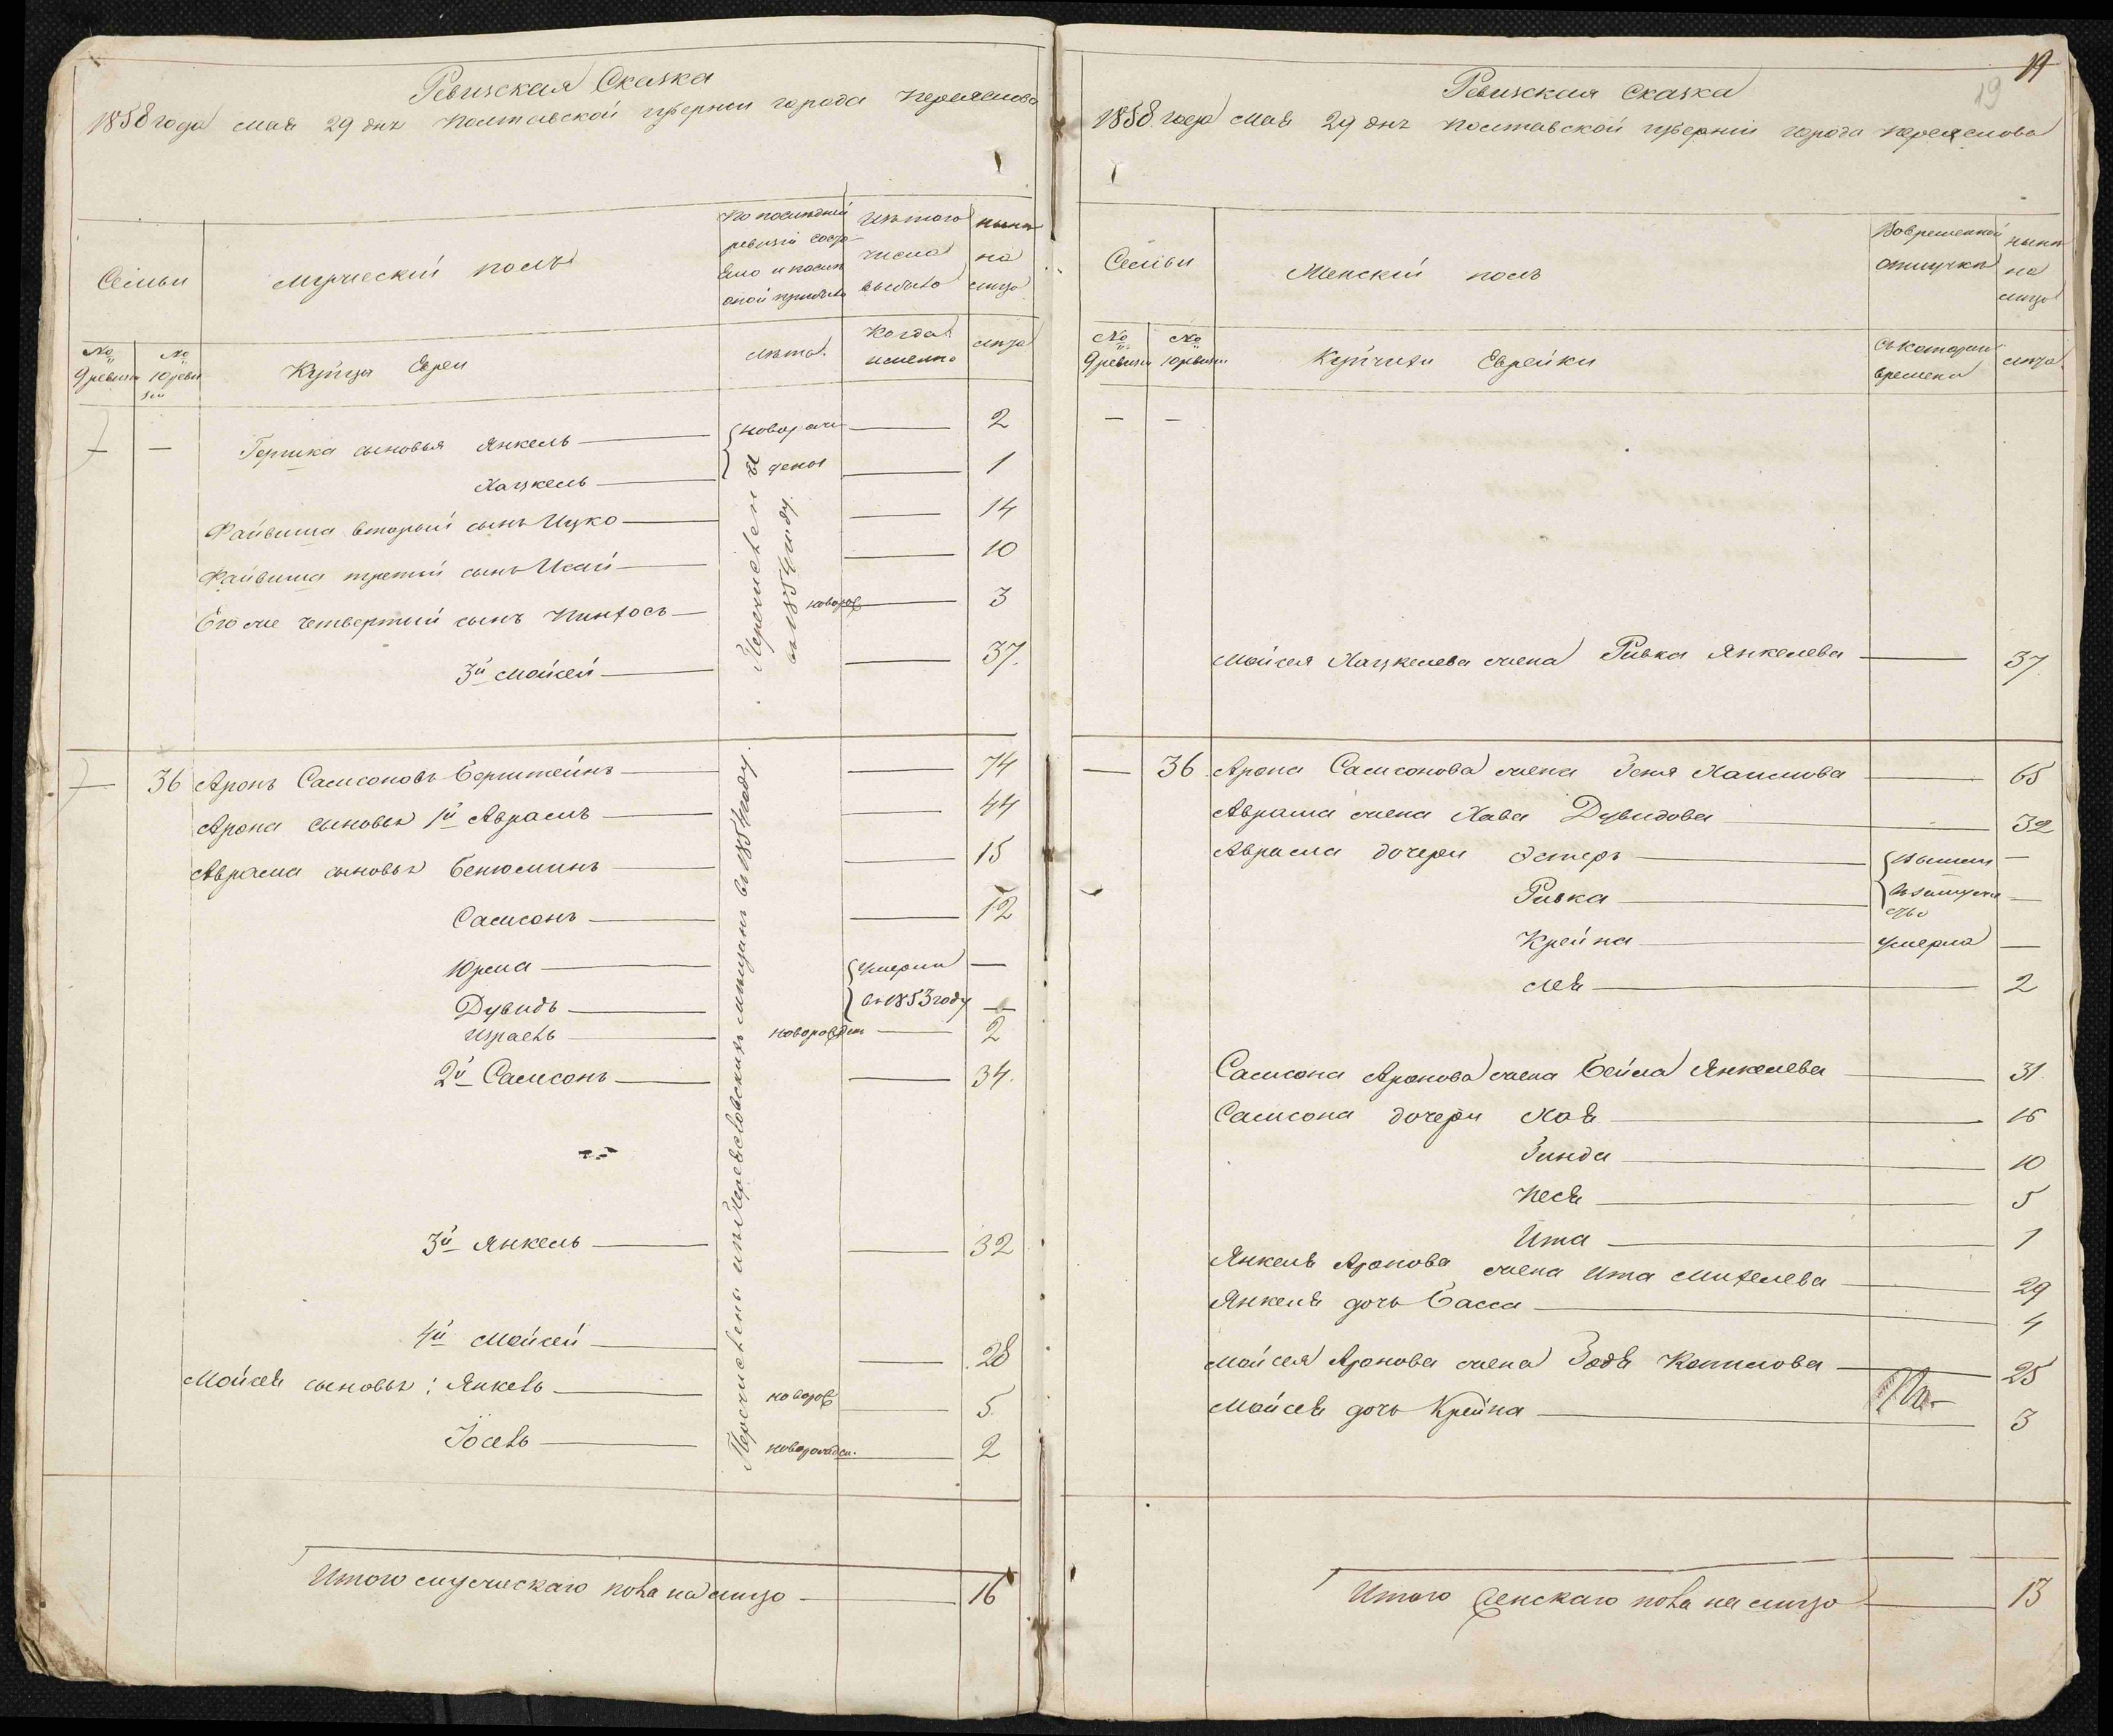 Ревизская Сказка
1858 года мая 29 дня Полтавской губернии города Переяслова
Семьи
Мужеский полъ
По последней
ревизіи состо-
яло и после
оной прибыло
Изъ того
числа
выбыло
ныне
на
лицо
№
9 ревизіи
№
10 реви
зіи
Купцы Евреи
лета.
Когда
именно
лета
— — Гершка сыновья Янкель — новорож — 2
Хацкель — дены — 1
Файвиша вторый сынъ Ицко — 14
Файвиша третій сынъ Исай — 10
Его же четвертый сынъ Пинхосъ — новорож — 3
3й Мойсей — 37.
Перечислен
въ 1854 году.
— 36 Аронъ Самсоновъ Берштейнъ — 74
Арона сыновья 1й Аврамъ — 44
Аврама сыновья Бенюминъ — 15
Самсонъ — 12
Юрма — Умерли —
Дувидъ — въ 1853 году —
Израель — новорожден — 2
2й Самсонъ — 34.
3й Янкель — 32
4й Мойсей — 28
Мойсея сыновья: Янкель — новорож — 5
Йосель — новорожден. — 2
Перечислены изъ Переяславскихъ мещанъ въ 1854 году.
Итого мужескаго пола на лицо — 16
19
19
Ревизская Сказка
1858 года Мая 29 дня Полтавской губерніи города Переяслова
Семьи
Женскій полъ
Вовременной
отлучке
ныне
на
лицо
№
9 ревизіи
№
10 ревизіи
Купчихи Еврейки
Съ котораго
времени
лета.
— —
Мойсея Хацкелева жена Ривка Янкелева — 37
— 36 Арона Самсонова жена Зеня Хаимова — 65
Аврама жена Хава Дувидова — 32
Аврама дочери Эстеръ — Вышли —
Ривка — въ замуже
ство —
Крейна — умерла —
Лея — 2
Самсона Аронова жена Бейла Янкелева — 31
Самсона дочери Хая — 16
Зинда — 10
Песя — 5
Ита — 1
Янкеля Аронова жена Ита Михелева — 29
Янкеля дочь Басса — 4
Мойсея Аронова жена Зодя Копилова — 25
Мойсея дочь Крейна — 3
Итого Женскаго пола на лицо — 13